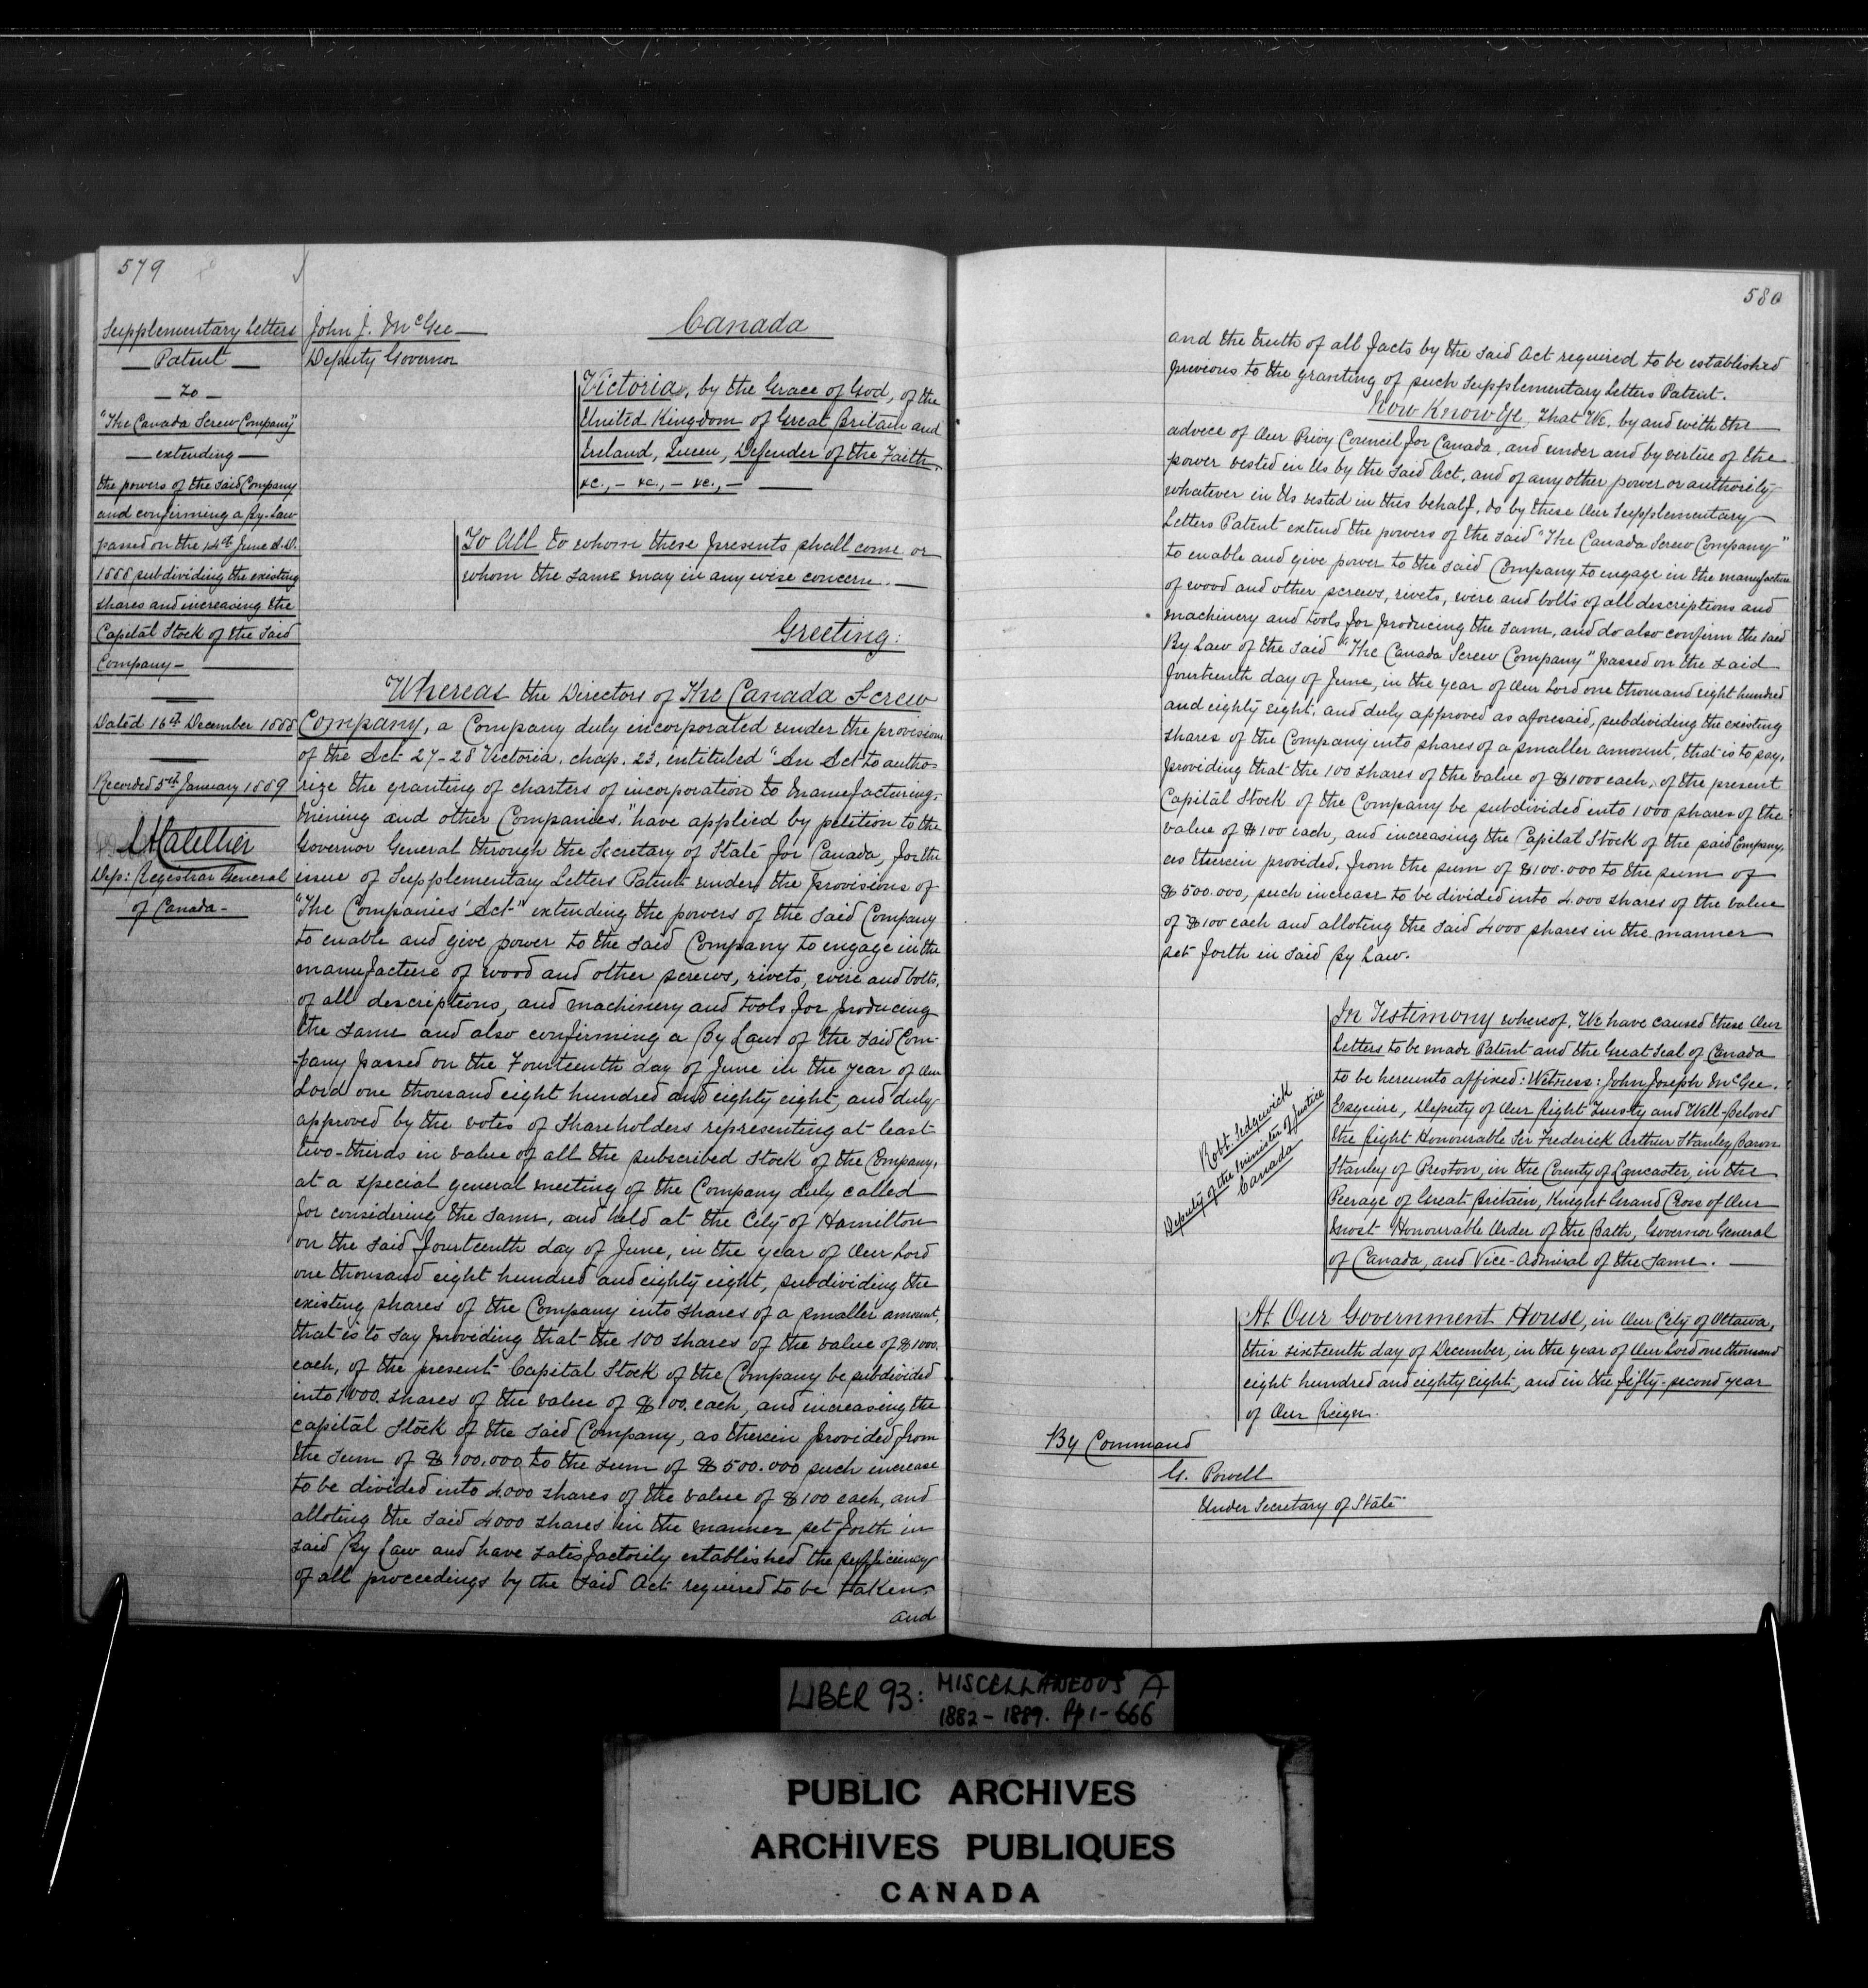 579
Supplementary Letters
Patent
to
"The Canada Screw Company"
extending
the powers of the said Company
and confirming a By-Law
passed on the 14th June A.D.
1888 subdividing the existing
shares and increasing the
Capital Stock of the said
Company
Dated 16th December 1888
Recorded 5th January 1889
Dep: Registrar General
of Canada
John J. McGee
Deputy Governor
Canada
Victoria, by the Grace of God, of the
United Kingdom of Great Britain and
Ireland, Queen, Defender of the Faith
&c., - &c., - &c., -
To All to whom these presents shall come or
whom the same may in any wise concern.
Greeting:
Whereas the Directors of The Canada Screw
Company, a Company duly incorporated under the provisions
of the Act 27-28 Victoria, chap. 23, intituled "An Act to autho=
rize the granting of charters of incorporation to manufacturing,
mining and other Companies," have applied by petition to the
Governor General through the Secretary of State for Canada, for the
issue of Supplementary Letters Patent under the provisions of
"The Companies' Act" extending the powers of the said Company
to enable and give power to the said Company to engage in the
manufacture of wood and other screws, rivets, wire and bolts,
of all descriptions, and machinery and tools for producing
the same and also confirming a By Law of the said Com-
-pany passed on the Fourteenth day of June in the year of Our
Lord one thousand eight hundred and eighty eight, and duly
approved by the votes of Shareholders representing at least
two-thirds in value of all the subscribed stock of the Company,
at a special general meeting of the Company duly called
for considering the same, and held at the City of Hamilton
on the said fourteenth day of June, in the year of Our Lord
one thousand eight hundred and eighty eight, subdividing the
existing shares of the Company into shares of a smaller amount,
that is to say providing that the 100 shares of the value of $1000.
each, of the present Capital Stock of the Company be subdivided
into 1000. shares of the value of $100. each, and increasing the
capital stock of the said Company, as therein provided from
the sum of $100.000 to the sum of $500.000 such increase
to be divided into 4.000 shares of the value of $100 each, and
alloting the said 4000 shares in the manner set forth in
said By Law and have satisfactorily established the sufficiency
of all proceedings by the said Act required to be taken.
and
580
and the truth of all facts by the said Act required to be established
previous to the granting of such Supplementary Letters Patent.
Now Know Ye, that We, by and with the
advice of Our Privy Council for Canada, and under and by virtue of the
power vested in Us by the said Act, and of any other power or authority
whatever in Us vested in this behalf, do by these Our Supplementary
Letters Patent extend the powers of the said "The Canada Screw Company"
to enable and give power to the said Company to engage in the manufacture
of wood and other screws, rivets, wire and bolts of all descriptions and
machinery and tools for producing the same, and do also confirm the said
By Law of the said "The Canada Screw Company" passed on the said
fourteenth day of June, in the year of Our Lord one thousand eight hundred
and eighty eight, and duly approved as aforesaid, subdividing the existing
shares of the Company into shares of a smaller amount, that is to say,
providing that the 100 shares of the value of $1000 each, of the present
Capital Stock of the Company be subdivided into 1000 shares of the
value of $100 each, and increasing the Capital Stock of the said Company,
as therein provided, from the sum of $100.000 to the sum of
$500.000, such increase to be divided into 4.000 shares of the value
of $100 each and alloting the said 4000 shares in the manner
set forth in said By Law.
Robt. Sedgewick
Deputy of the Minister of Justice
Canada
In Testimony whereof, We have caused these Our
Letters to be made Patent and the Great Seal of Canada
to be hereunto affixed: Witness: John Joseph McGee.
Esquire, Deputy of Our Right Trusty and Well-Beloved
the Right Honourable Sir Frederick Arthur Stanley Baron
Stanley of Preston, in the County of Lancaster, in the
Peerage of Great Britain, Knight Grand Cross of Our
Most Honourable Order of the Bath, Governor General
of Canada, and Vice-Admiral of the same.
At Our Government House, in Our City of Ottawa,
this sixteenth day of December, in the year of Our Lord one thousand
eight hundred and eighty eight, and in the fifty-second year
of Our Reign.
By Command
G. Powell
Under Secretary of State
LIBER 93: MISCELLANEOUS A
1882-1889. Pp 1-666
PUBLIC ARCHIVES
ARCHIVES PUBLIQUES
CANADA